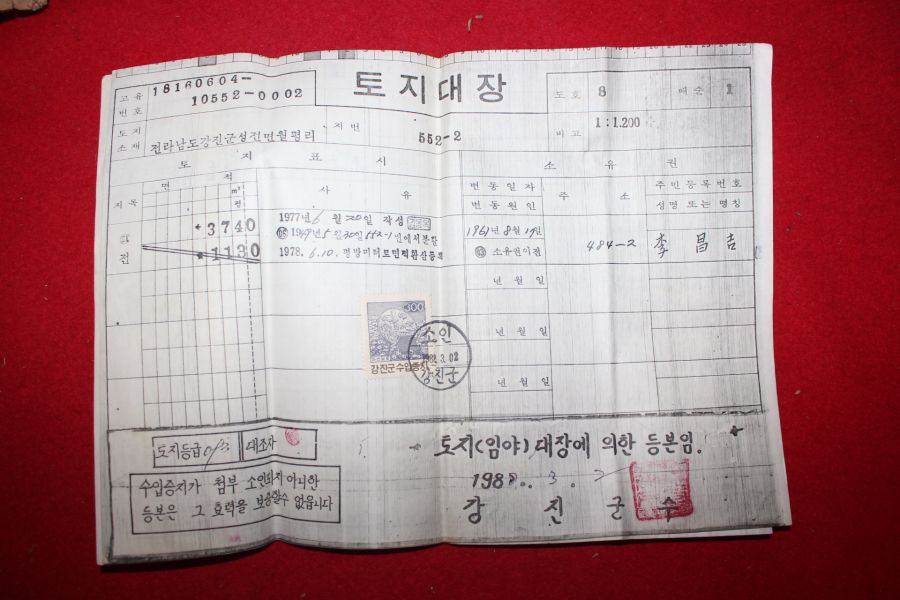 토지대장
고유번호 18160604-10552-0002
도호 8 매순 1
토지소재 전라남도강진군성전면월평리 지번 552-2 비고 1:1.200
토지표시 소유권
지목 면적 사유 변동일자 주소 주민등록번호
㎡ 평 변동원인 성명 또는 명칭
*3740 1977년 6월 20일 작성 1961년 8월 19일
전 *1130 1949년 5월 30일 552-1번에서분할 소유권이전 484-2 李昌吉
1978. 6.10. 평방미터로면적환산등록
년 월 일
300
소인
년 월 일
1988.3.02
강진군수입증지
강진군
년 월 일
토지등급 대조자
토지(임야)대장에 의한 등본임.
수입증지가 첨부 소인되지 아니한
등본은 그 효력을 보증할수 없읍니다
1988. 3. 2
강진군수